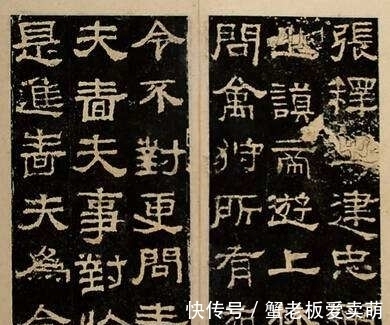 張釋建忠
之謨帝遊上
問禽狩所有
令不對更問嗇
夫嗇夫事對於
是進嗇夫為令
快传号/蟹老板爱卖萌